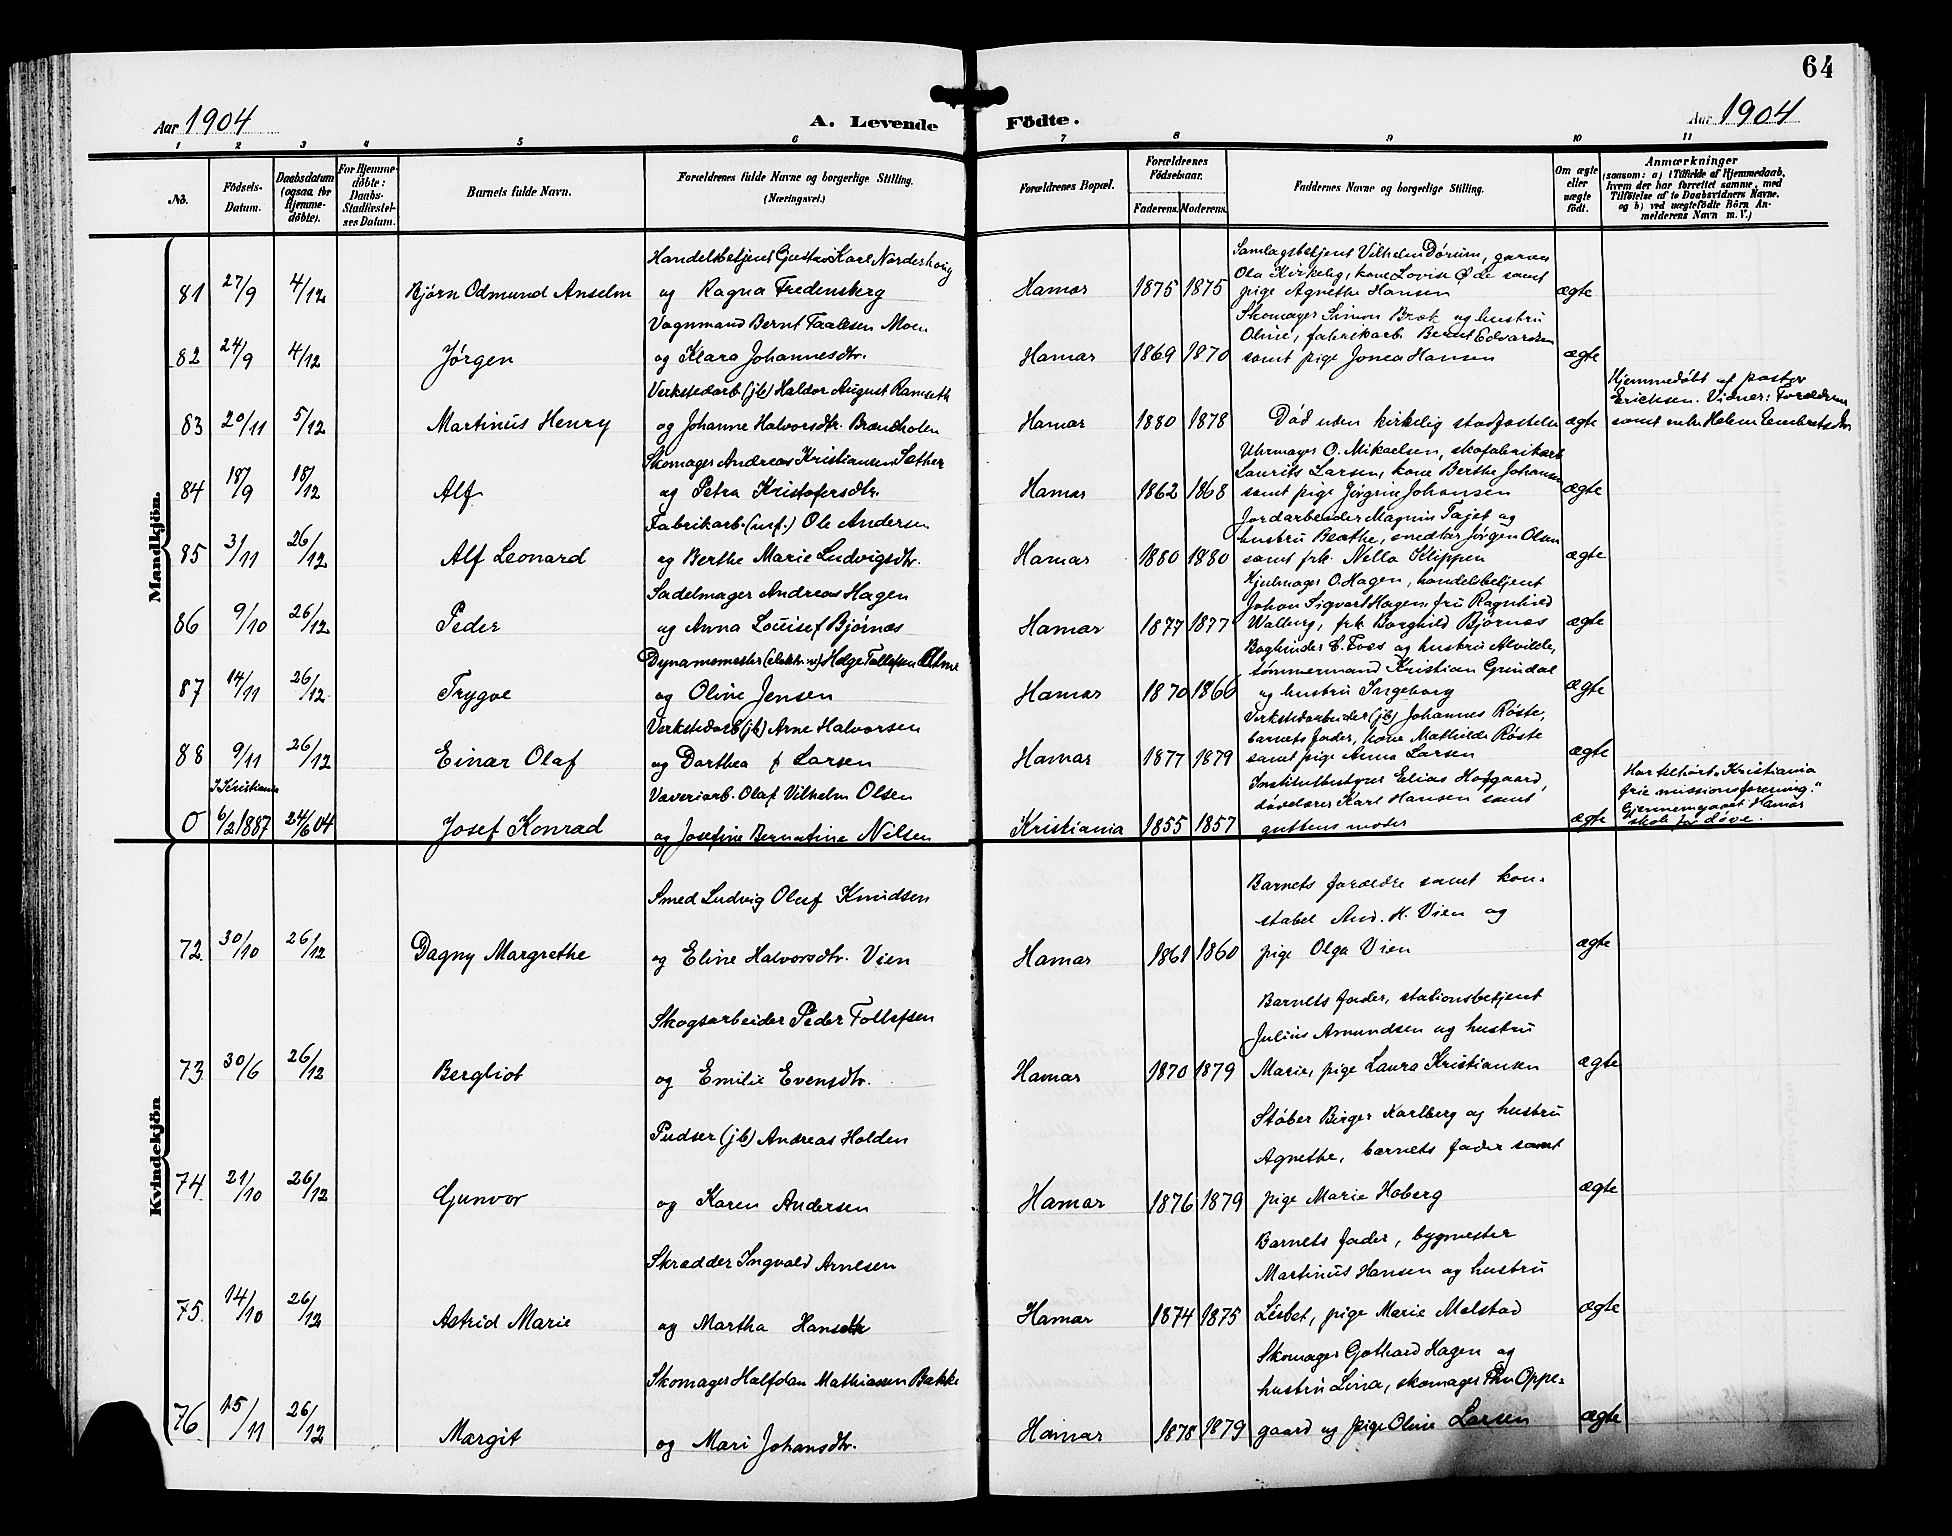 64
Aar 1904
A. Levende
Födte.
Aar 1904
1 2 3 4 5 6 7 8 9 10 11
No.
Födsels-Datum.
Daabsdatum (ogsaa for Hjemmedöbte).
For Hjemmedöbte: Daabs-Stadfæstelses Datum.
Barnets fulde Navn.
Forældrenes fulde Navne og borgerlige Stilling. (Næringsvei.)
Forældrenes Bopæl.
Forældrenes Födselsaar.
Faderens. Moderens.
Faddernes Navne og borgerlige Stilling.
Om ægte eller uægte født.
Anmærkninger
(saasom: a) i Tilfælde af Hjemmedaab, hvem der har forrettet samme, med Tilföielse af to Daabsvidners Navne, og b) ved uægtefödte Börn Anmelderens Navn m. V.)
Mandkjön.
Handelsbetjent Gustav Karl Norderhoug
Samlagsbetjent Vilhelm Dörum, garver
Ola Kirkelig, kone Lovise Øde samt
81 27/9 4/12 Björn Odmund Anselm og Ragna Fredensberg Hamar 1875 1875 pige Agnethe Hansen ægte
Vognmand Bernt Taalesen Moen
Skomager Simon Bræk og hustru
Oline, fabrikarb. Bernt Edvardsen
82 24/9 4/12 Jørgen og Klara Johannesdtr. Hamar 1869 1870 samt pige Jonea Hansen ægte
Verkstedarb (jb) Haldor August Ramseth
Hjemmedöbt af pastor
Ericksen. Vidner: Forældrene
83 20/11 5/12 Martinus Henry og Johanne Halvorsdtr. Brændholen Hamar 1880 1878 Död uden kirkelig stadfæstelse ægte samt enke Helene Engebretsdtr
Skomager Andreas Kristiansen Sæther
Uhrmager O. Mikaelsen, skofabrikarb.
Laurits Larsen, kone Berthe Johansen
84 18/9 18/12 Alf og Petra Kristofersdtr. Hamar 1862 1868 samt pige Jörgine Johansen ægte
Fabrikarb. Ole Andersen
Jordarbeider Magnus Tajet og
hustru Beathe, Jørgen Olsen
85 3/11 26/12 Alf Leonard og Berthe Marie Ludvigsdtr. Hamar 1880 1880 samt frk. Nella Klippen ægte
Sadelmager Andreas Hagen
Hjulmager O. Hagen, handelsbetjent
Johan Sigvart Hagen, fru Ragnhild
86 9/10 26/12 Peder og Anna Louise f Bjørnæs Hamar 1877 1877 Walberg, frk. Borghild Bjørnæs ægte
Dynamomester (elektr. v) Helge Tollefsen
Bogbinder C. Foss og hustru Alvilde,
tømmermand Kristian Grindal
87 14/11 26/12 Trygve og Oline Jensen Hamar 1870 1866 og hustru Ingeborg ægte
Verkstedarb (jb) Arne Halvorsen
Verkstedarbeider (jb) Johannes Røste,
barnets fader, kone Mathilde Røste
88 9/11 26/12 Einar Olaf og Dorthea f Larsen Hamar 1877 1879 samt pige Anna Larsen ægte
I Kristiania
Væveriarb. Olaf Vilhelm Olsen
Institutbestyrer Elias Hofgaard,
dövelærer Karl Hansen samt
Har tilhört "Kristiania
frie missionsforening."
Gjennemgaaet Hamar
0 6/2 1887 24/6 04 Josef Konrad og Josefine Bernantine Nilsen Kristiania 1855 1857 guttens moder ægte skole for döve.
Kvindekjön
Smed Ludvig Oluf Knudsen
Barnets forældre samt kon-
stabel And. H. Vien og
72 30/10 26/12 Dagny Margrethe og Eline Halvorsdtr. Vien Hamar 1861 1860 pige Olga Vien ægte
Skogsarbeider Peder Tollefsen
Barnets fader, stationsbetjent
Julius Amundsen og hustru
73 30/6 26/12 Bergliot og Emilie Evensdtr. Hamar 1870 1879 Marie, pige Laura Kristiansen ægte
Pudser (jb) Andreas Holden
Støber Birger Karlberg og hustru
Agnethe, barnets fader samt
74 21/10 26/12 Gunvor og Karen Andersen Hamar 1876 1879 pige Marie Hoberg ægte
Skrædder Ingvald Arnesen
Barnets fader, bygmester
Martinus Hansen og hustru
75 14/10 26/12 Astrid Marie og Martha Hansdtr Hamar 1874 1875 Lisbet, pige Marie Melstad ægte
Skomager Halfdan Mathiasen Bakke
Skomager Gothard Hagen og
hustru Lina, skomager Oppe-
76 15/11 26/12 Margit og Mari Johansdtr. Hamar 1878 1879 gaard og pige Oline Larsen ægte